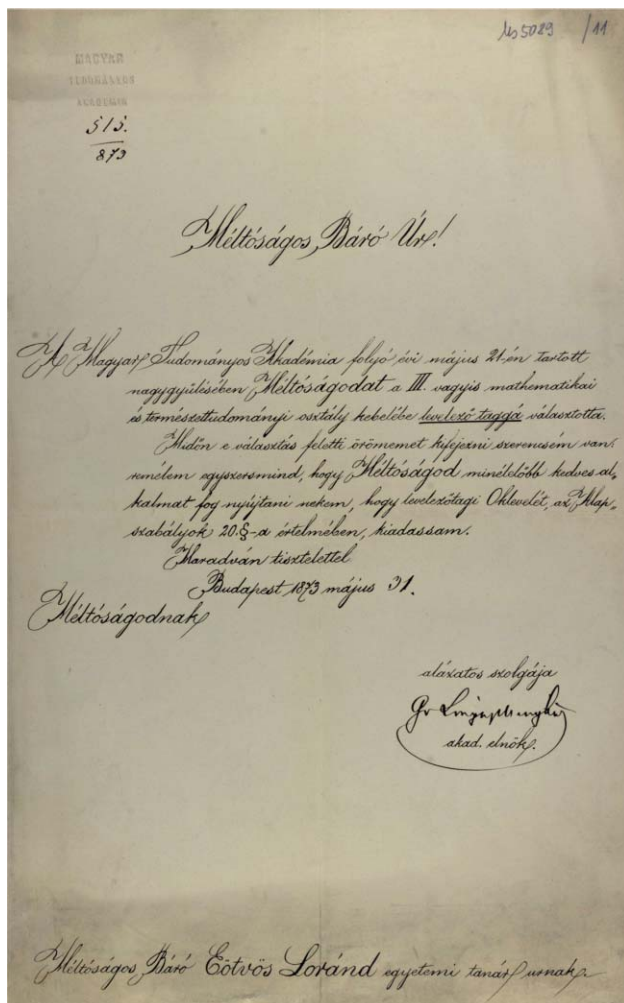 Ms 5089 /11
MAGYAR
TUDOMÁNYOS
AKADÉMIA
513.
873
Méltóságos Báró Úr!
A Magyar Tudományos Akadémia folyó évi május 21-én tartott
nagygyülésében Méltóságodat a III. vagyis mathematikai
és természettudományi osztály kebelébe levelező taggá választotta.
Midőn e választás feletti örömemet kifejezni szerencsém van,
remélem egyszersmind, hogy Méltóságod minélelőbb kedves al-
kalmat fog nyújtani nekem, hogy levelezőtagi Oklevelét, az Alap-
szabályok 20.§-a értelmében, kiadassam.
Maradván tisztelettel
Budapest 1873 május 31.
Méltóságodnak
alázatos szolgája
Gr
akad. elnök.
Méltóságos Báró Eötvös Loránd egyetemi tanár urnak